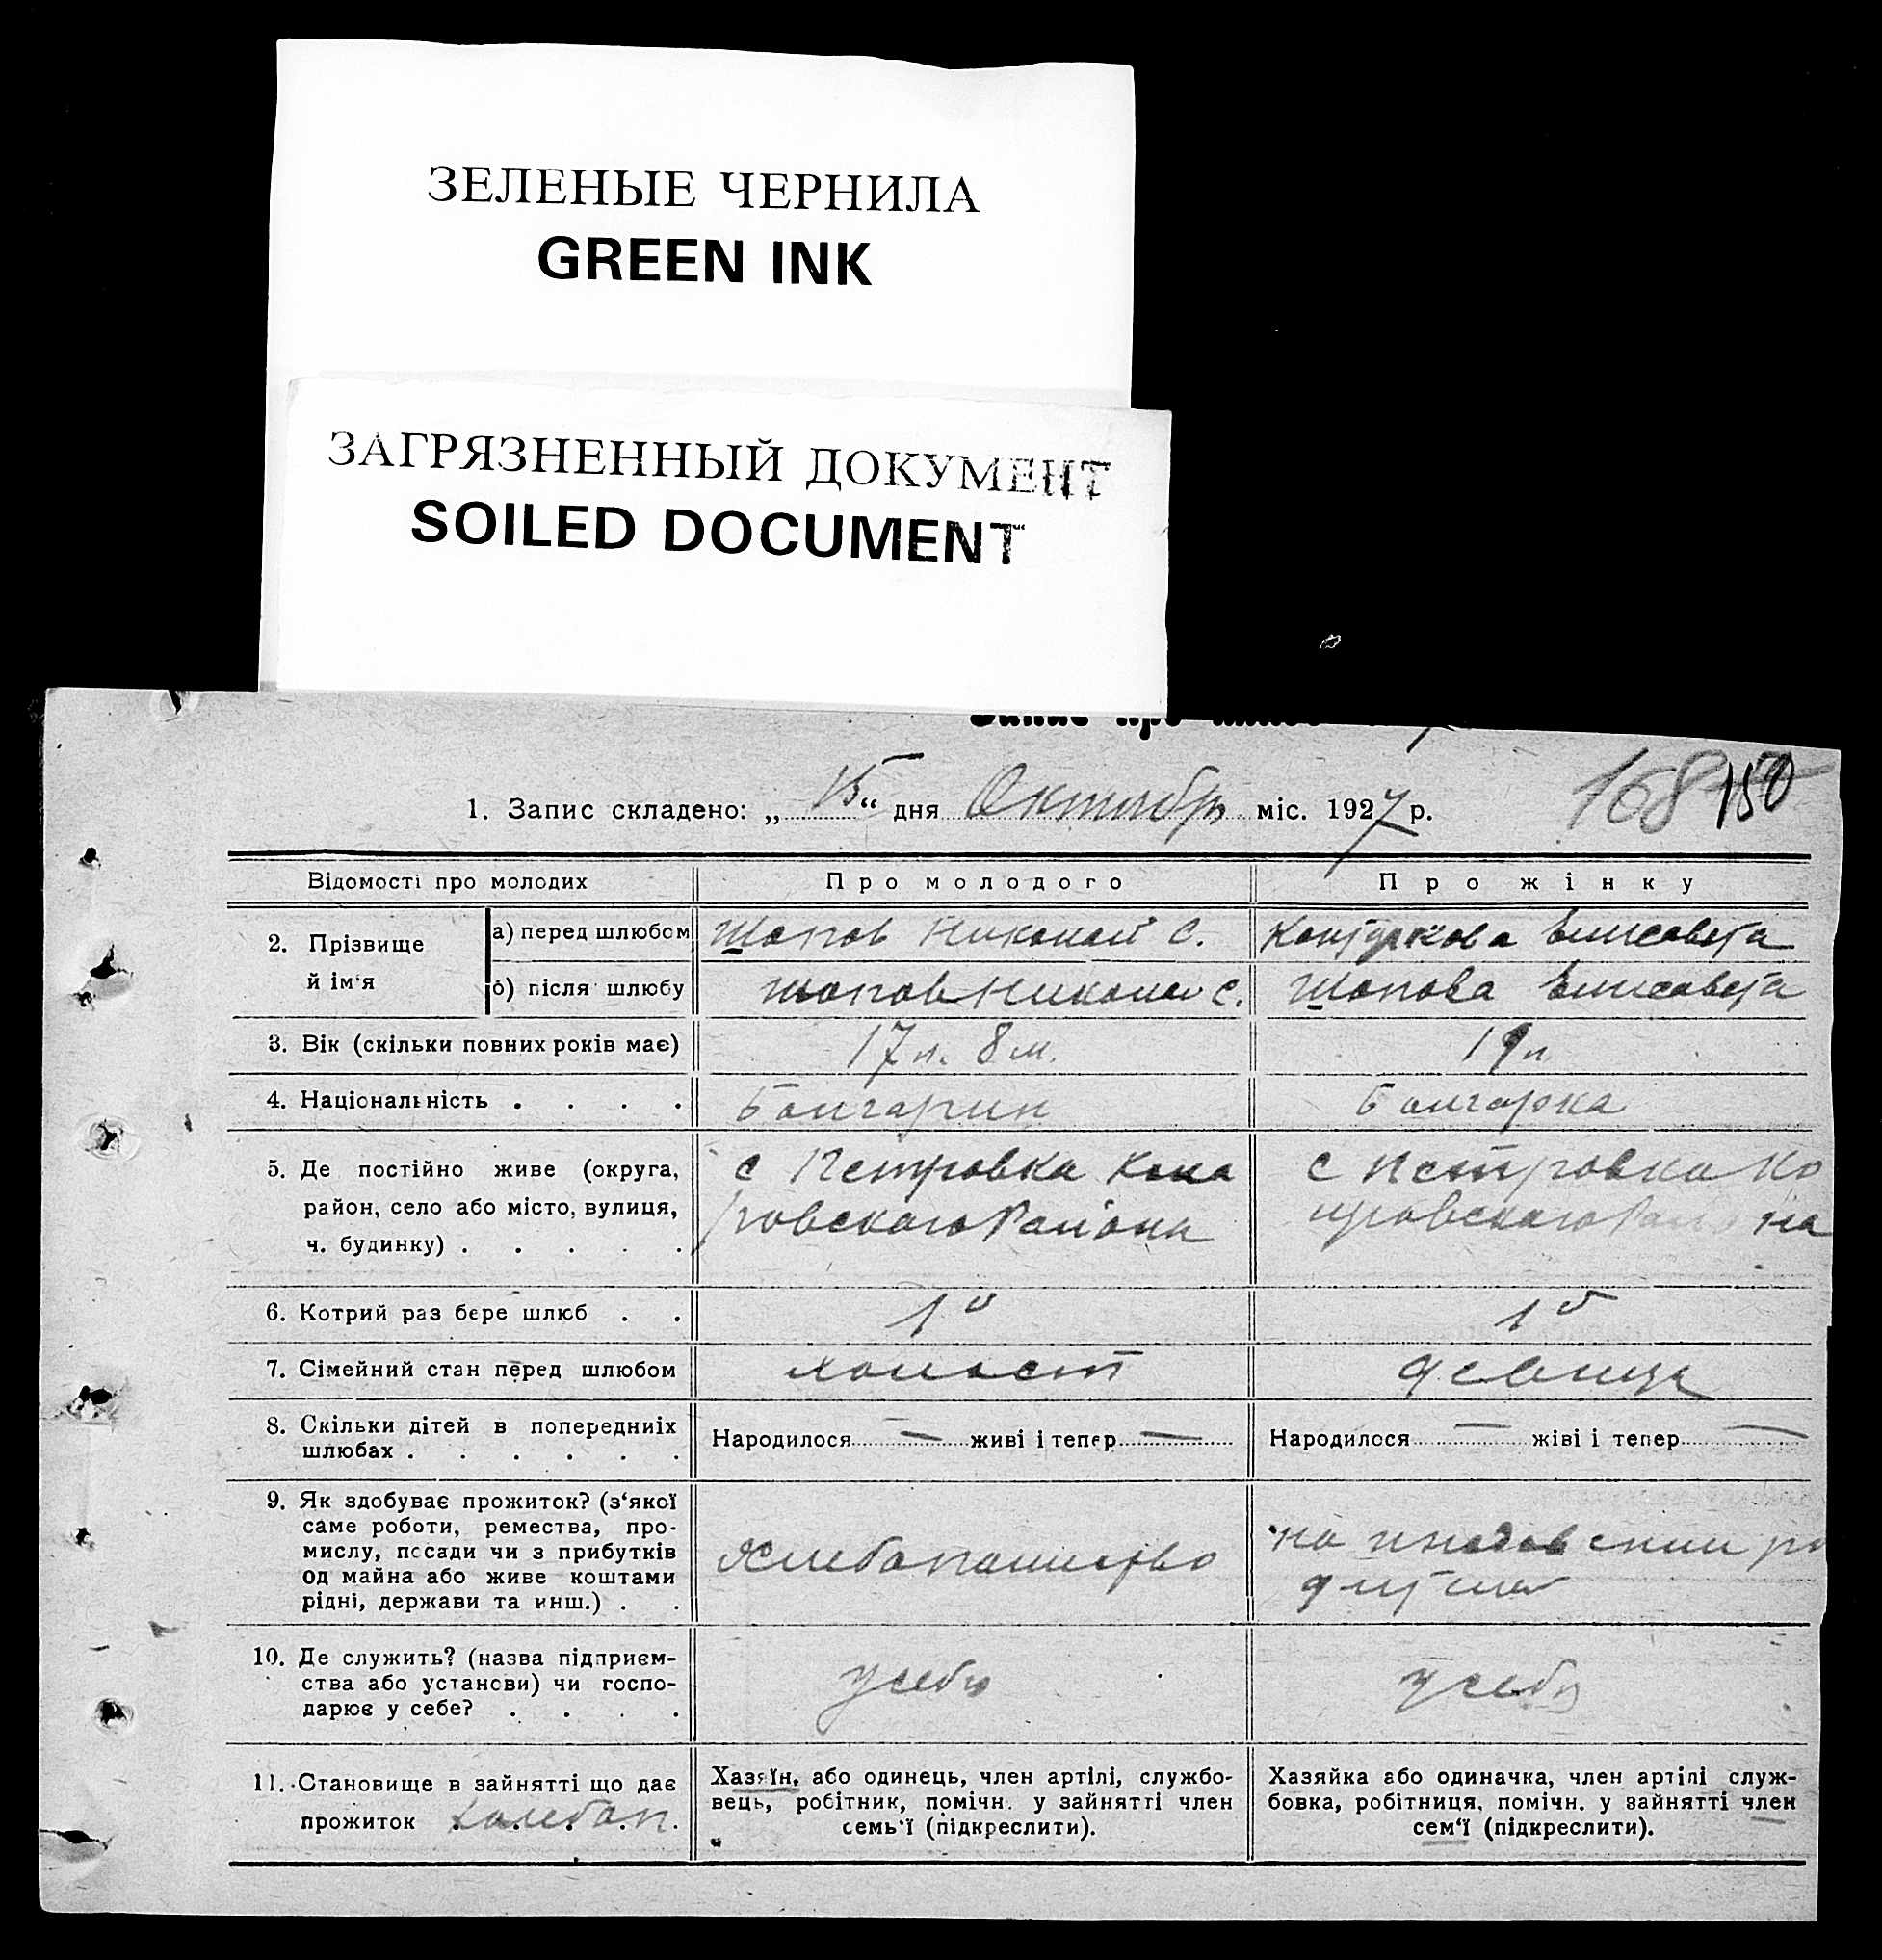 ЗЕЛЕНЫЕ ЧЕРНИЛА
GREEN INK
ЗАГРЯЗНЕННЫЙ ДОКУМЕНТ
SOILED DOCUMENT
168 150
1. Запис складено: „15“ дня Октября міс. 1927 р.
Відомості про молодих
Про молодого
Про жінку
2. Прізвище й ім'я
а) перед шлюбом
Шопов Николай С.
Елисавета
б) після шлюбу
Шопов Николай С.
Шопова Елисавета
3. Вік (скільки повних років має)
17 л. 8 м.
19 л
4. Національність . . . .
Болгарин
Болгарка
5. Де постійно живе (округа,
район, село або місто, вулиця,
ч. будинку) . . . . .
с Петровка Кома
ровского Района
с Петровка Ко
Района
6. Котрий раз бере шлюб . .
1й
1й
7. Сімейний стан перед шлюбом
холост
девица
8. Скільки дітей в попередниіх
шлюбах . . . . . .
Народилося — живі і тепер —
Народилося — жіві і тепер —
9. Як здобуває прожиток? (з‘якої
саме роботи, ремества, про-
мислу, посади чи з прибутків
од майна або живе коштами
рідні, держави та инш.) . .
Хлебопашество
на
10. Де служить? (назва підприєм-
ства або установи) чи госпо-
дарює у себе? . . . .
у себя
у себя
11. Становище в зайнятті що дає
прожиток хлебоп.
Хазяїн, або одинець, член артілі, службо-
вець, робітник, помічн. у зайнятті член
семь‘ї (підкреслити).
Хазяйка або одиначка, член артілі служ-
бовка, робітниця, помічн. у зайнятті член
сем‘ї (підкреслити).